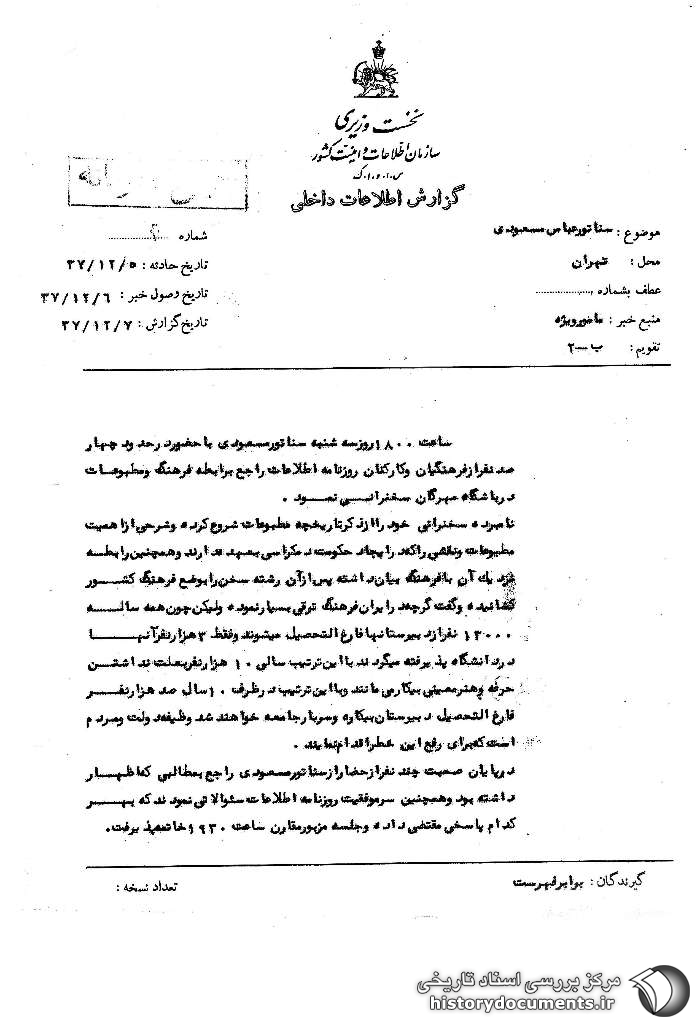 نخست وزیری
سازمان اطلاعات و امنیت کشور
س.ا.و.ا.ک
گزارش اطلاعات داخلی
موضوع : سناتور عباس مسعودی
محل : تهران
عطف بشماره ...............
منبع خبر : مامور ویژه
تقویم : ب-۲
شماره ...............
تاریخ حادثه : ۳۷/۱۲/۵
تاریخ وصول خبر : ۳۷/۱۲/۶
تاریخ گزارش : ۳۷/۱۲/۷
ساعت ۱۸۰۰ روز سه شنبه سناتور مسعودی با حضور در حدود چهار
صد نفر از فرهنگیان و کارکنان روزنامه اطلاعات راجع برابطه فرهنگ و مطبوعات
در باشگاه مهرگان سخنرانی نمود .
نامبرده سخنرانی خود را از ذکر تاریخچه مطبوعات شروع کرده و شرحی از اهمیت
مطبوعات و نقشی را که در ایجاد حکومت دمکراسی بعهده دارند و همچنین رابطه
نزدیك آن با فرهنگ بیان داشته پس از آن رشته سخن را بوضع فرهنگ کشور
کشانیده و گفت گرچه در ایران فرهنگ ترقی بسیار نموده ولیکن چون همه ساله
۱۳۰۰۰ نفر از دبیرستانها فارغ التحصیل میشوند و فقط ۳ هزار نفر آنها
در دانشگاه پذیرفته میگردند با این ترتیب سالی ۱۰ هزار نفر بعلت نداشتن
حرفه و هنر معینی بیکار می مانند و با این ترتیب در ظرف ۱۰ سال صد هزار نفر
فارغ التحصیل دبیرستان بیکاره و سربار جامعه خواهند شد وظیفه دولت و مردم
است که برای رفع این خطر اقدام نمایند .
در پایان صحبت چند نفر از حضار از سناتور مسعودی راجع بمطالبی که اظهار
داشته بود و همچنین سر موفقیت روزنامه اطلاعات سئوالاتی نمودند که بهر
کدام پاسخی مقتضی داده و جلسه مزبور مقارن ساعت ۱۹۳۰ خاتمه پذیرفت.
گیرندگان : برابر فهرست
تعداد نسخه :
مرکز بررسی اسناد تاریخی
historydocuments.ir